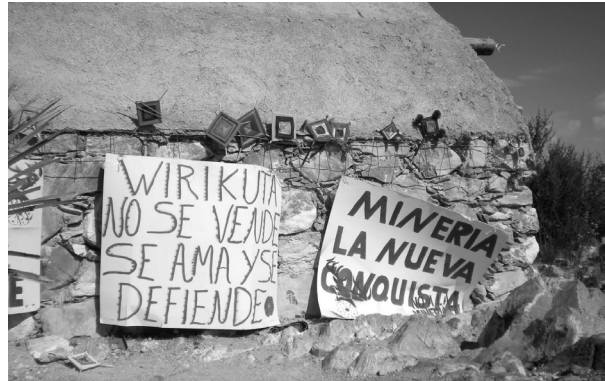 WIRIKUTA
NO SE VENDE
SE AMA Y SE
DEFIENDE
MINERIA
LA NUEVA
CONQUISTA
E